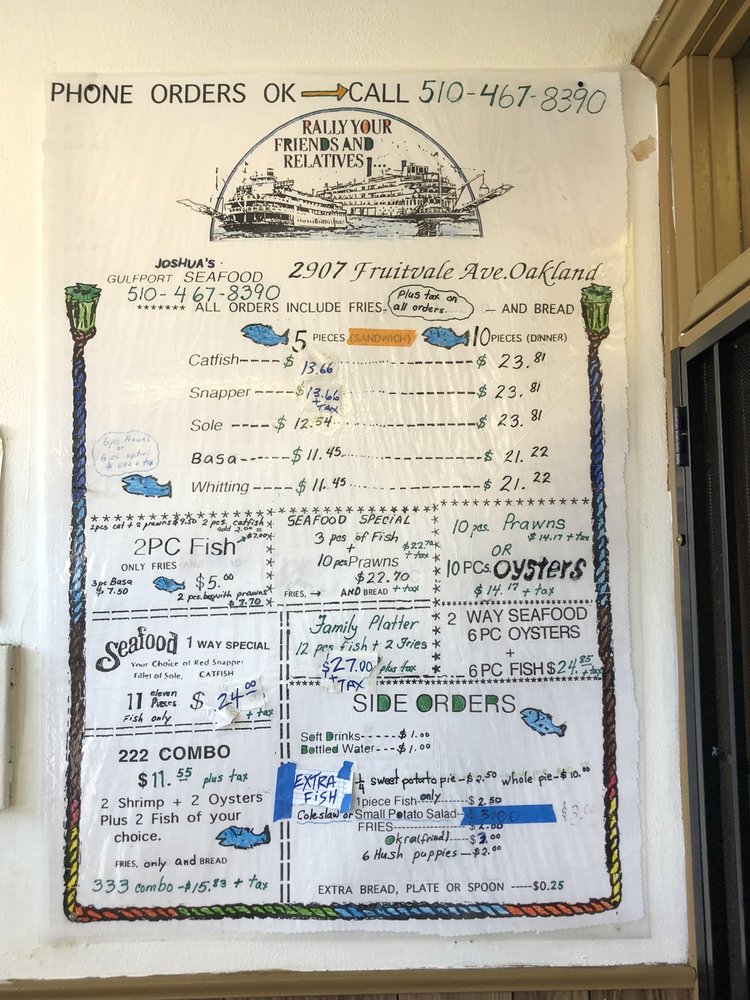 PHONE ORDERS OK → CALL 510-467-8390
RALLY YOUR
FRIENDS AND
RELATIVES!...
JOSHUA'S
GULFPORT SEAFOOD 2907 Fruitvale Ave.Oakland
510-467-8390
******* ALL ORDERS INCLUDE FRIES- Plus tax on all orders. - AND BREAD
5 PIECES (SANDWICH) 10 PIECES (DINNER)
Catfish---- $ 13.66 $ 23.81
Snapper ----$13.66 + TAX $ 23.81
Sole ---- $ 12.54 $ 23.81
Basa---- $ 11.45 $ 21.22
Whitting---- $ 11.45 $ 21.22
6 pcs Prawns
or
6 pcs oysters
+ tax
2pcs cat + 2 prawns $9.50 2 pcs. catfish
add 2.00 =
$7.00
2PC Fish
ONLY FRIES AND
3pc Basa
$7.50
$5.00
2 pcs. basa with prawns
$7.70
SEAFOOD SPECIAL
3 pcs of Fish
+
10 pcs Prawns
$22.70
+ tax
$22.70
FRIES, → AND BREAD + tax
10 pcs. Prawns
$14.17 + tax
OR
10 PCs. OYSTERS
$14.17 + tax
Seafood 1 WAY SPECIAL
Your Choice of Red Snapper
Fillet of Sole, CATFISH
11 eleven Pieces $ 24.00
Fish only + tax
Family Platter
12 pcs fish + 2 Fries
$27.00 plus tax
+ TAX
2 WAY SEAFOOD
6 PC OYSTERS
+
6 PC FISH $24.85
+ tax
222 COMBO
$11.55 plus tax
2 Shrimp + 2 Oysters
Plus 2 Fish of your
choice.
FRIES, only and BREAD
333 combo -$15.83 + tax
SIDE ORDERS
Soft Drinks------$1.00
Bottled Water---$1.00
EXTRA
FISH
1/4 sweet potato pie-$2.50 whole pie-$10.00
1piece Fish only-------$2.50
Coleslaw or Small Potato Salad--$3.00 $3.00
FRIES-----------$2.00
Okra(fried)----$3.00
6 Hush puppies-$2.00
EXTRA BREAD, PLATE OR SPOON -----$0.25